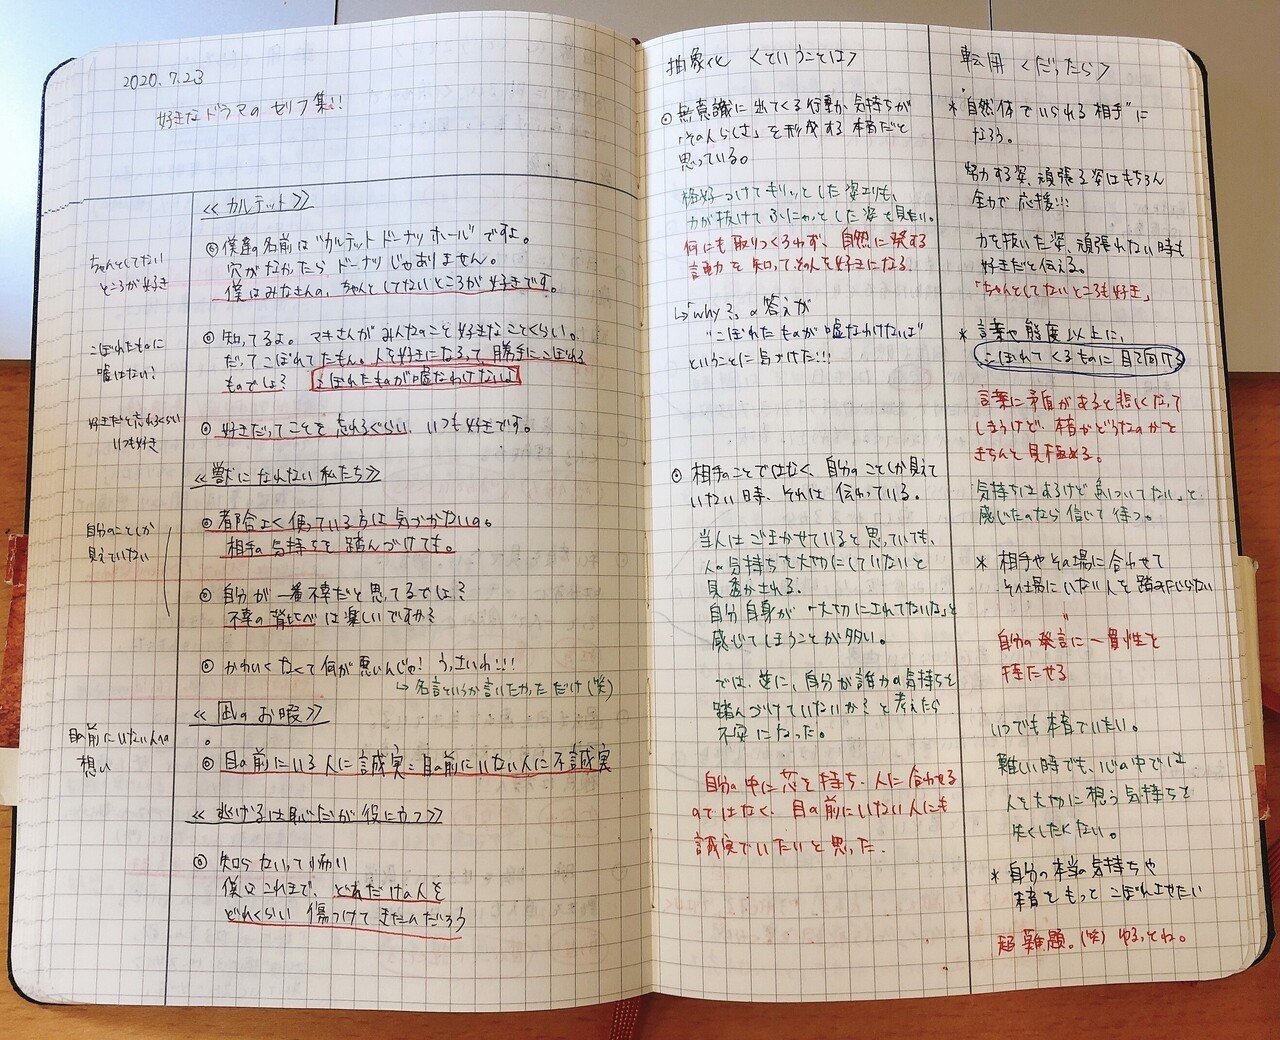 2020.7.23
好きなドラマのセリフ集!!
ちゃんとしてない
ところが好き
こぼれたものに
嘘はない?
好きだと忘れるくらい
いつも好き
自分のことしか
見えていない
目の前にいない人への
想い
≪カルテット≫
◎ 僕達の名前は"カルテットドーナツホール"ですよ。
穴がなかったらドーナツじゃありません。
僕はみなさんの、ちゃんとしてないところが好きです。
◎ 知ってるよ。マキさんがみんなのこと好きなことくらい。
だってこぼれてたもん。人を好きになるって、勝手にこぼれる
ものでしょ? こぼれたものが嘘なわけないよ
◎ 好きだってことを忘れるぐらい、いつも好きです。
≪獣になれない私たち≫
◎ 都合よく使っている方は気づかないの。
相手の気持ちを踏んづけても。
◎ 自分が一番不幸だと思ってるでしょ?
不幸の背比べは楽しいですか?
◎ かわいくなくて何が悪いんじゃ! うっさいわ!!!
↳ 名言というか言いたかっただけ(笑)
≪凪のお暇≫
◎ 目の前にいる人に誠実 = 目の前にいない人に不誠実
≪逃げるは恥だが役に立つ≫
◎ 知らないって怖い
僕はこれまで、どれだけの人を
どれくらい傷つけてきたのだろう
抽象化 <ということは>
◎ 無意識に出てくる行動や気持ちが
「その人らしさ」を形成する本音だと
思っている。
格好つけてキリッとした姿よりも、
力が抜けてふにゃっとした姿を見たい。
何にも取りつくろわず、自然に発する
言動を知って、その人を好きになる。
↳「why?」の答えが
"こぼれたものが嘘なわけないよ"
ということに気づけた!!!
◎ 相手のことではなく、自分のことしか見えて
いない時、それは伝わっている。
当人はごまかせていると思っていても、
人の気持ちを大切にしていないと
見透かされる。
自分自身が「大切にされてないな」と
感じてしまうことが多い。
では、逆に、自分が誰かの気持ちを
踏んづけていないか?と考えたら
不安になった。
自分の中に芯を持ち、人に合わせる
のではなく、目の前にいない人にも
誠実でいたいと思った。
転用 <だったら>
* "自然体でいられる相手"に
なろう。
努力する姿、頑張る姿はもちろん
全力で応援!!!
力を抜いた姿、頑張れない時も
好きだと伝える。
「ちゃんとしてないところも好き」
* 言葉や態度以上に、
こぼれてくるものに目を向ける
言葉に矛盾があると悲しくなって
しまうけど、本音がどうなのかを
きちんと見極める。
気持ちはあるけど追いついてない、と
感じたのなら信じて待つ。
* 相手やその場に合わせて
その場にいない人を踏みにじらない
自分の発言に一貫性を
持たせる
いつでも本音でいたい。
難しい時でも、心の中では
人を大切に想う気持ちを
失くしたくない。
* 自分の本当の気持ちや
本音をもって こぼれさせたい
超難題。(笑) ゆるってね。